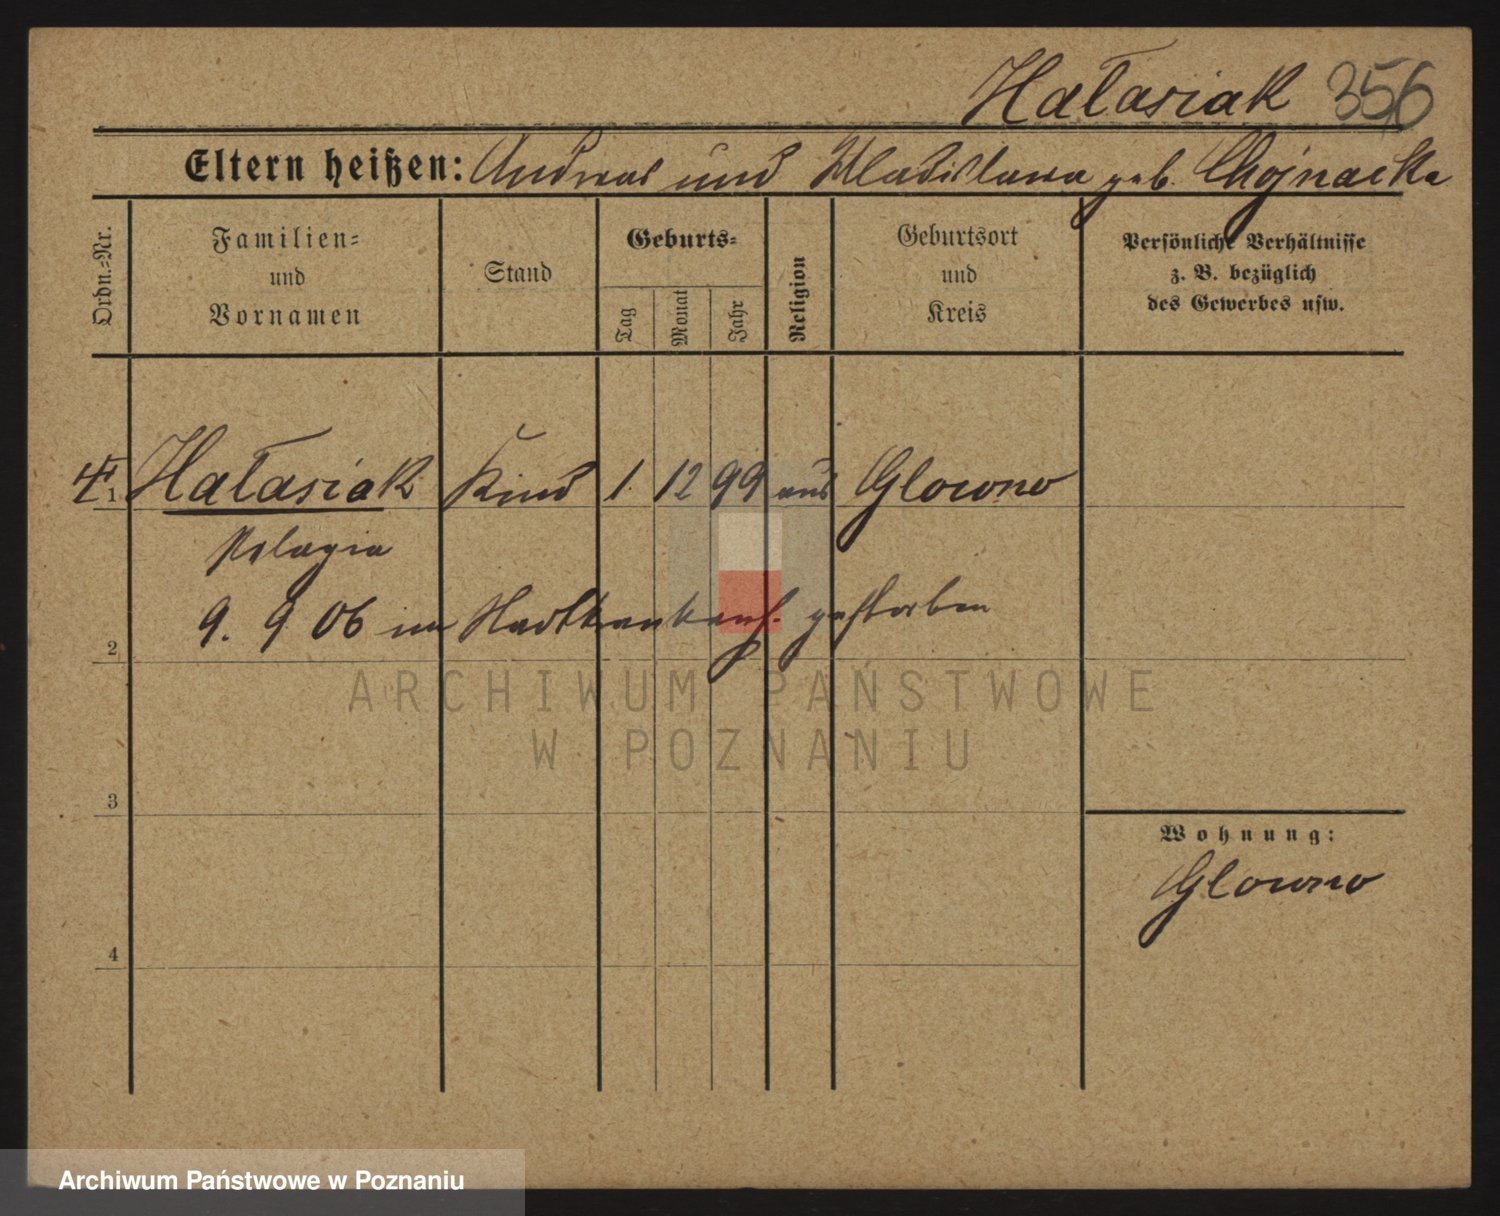 Hałasiak 356
Eltern heißen: Andreas und Wladislawa geb. Chojnacka
Ordn.-Nr.
Familien- und Vornamen
Stand
Geburts-
Tag
Monat
Jahr
Religion
Geburtsort und Kreis
Persönliche Verhältnisse
z. B. bezüglich
des Gewerbes usw.
1 Hałasiak Kind 1. 12 99 aus Glowno
Pelagia
9. 9 06 im Stadtkrankenh. gestorben
2
ARCHIWUM PAŃSTWOWE
W POZNANIU
3
Wohnung:
Glowno
4
Archiwum Państwowe w Poznaniu